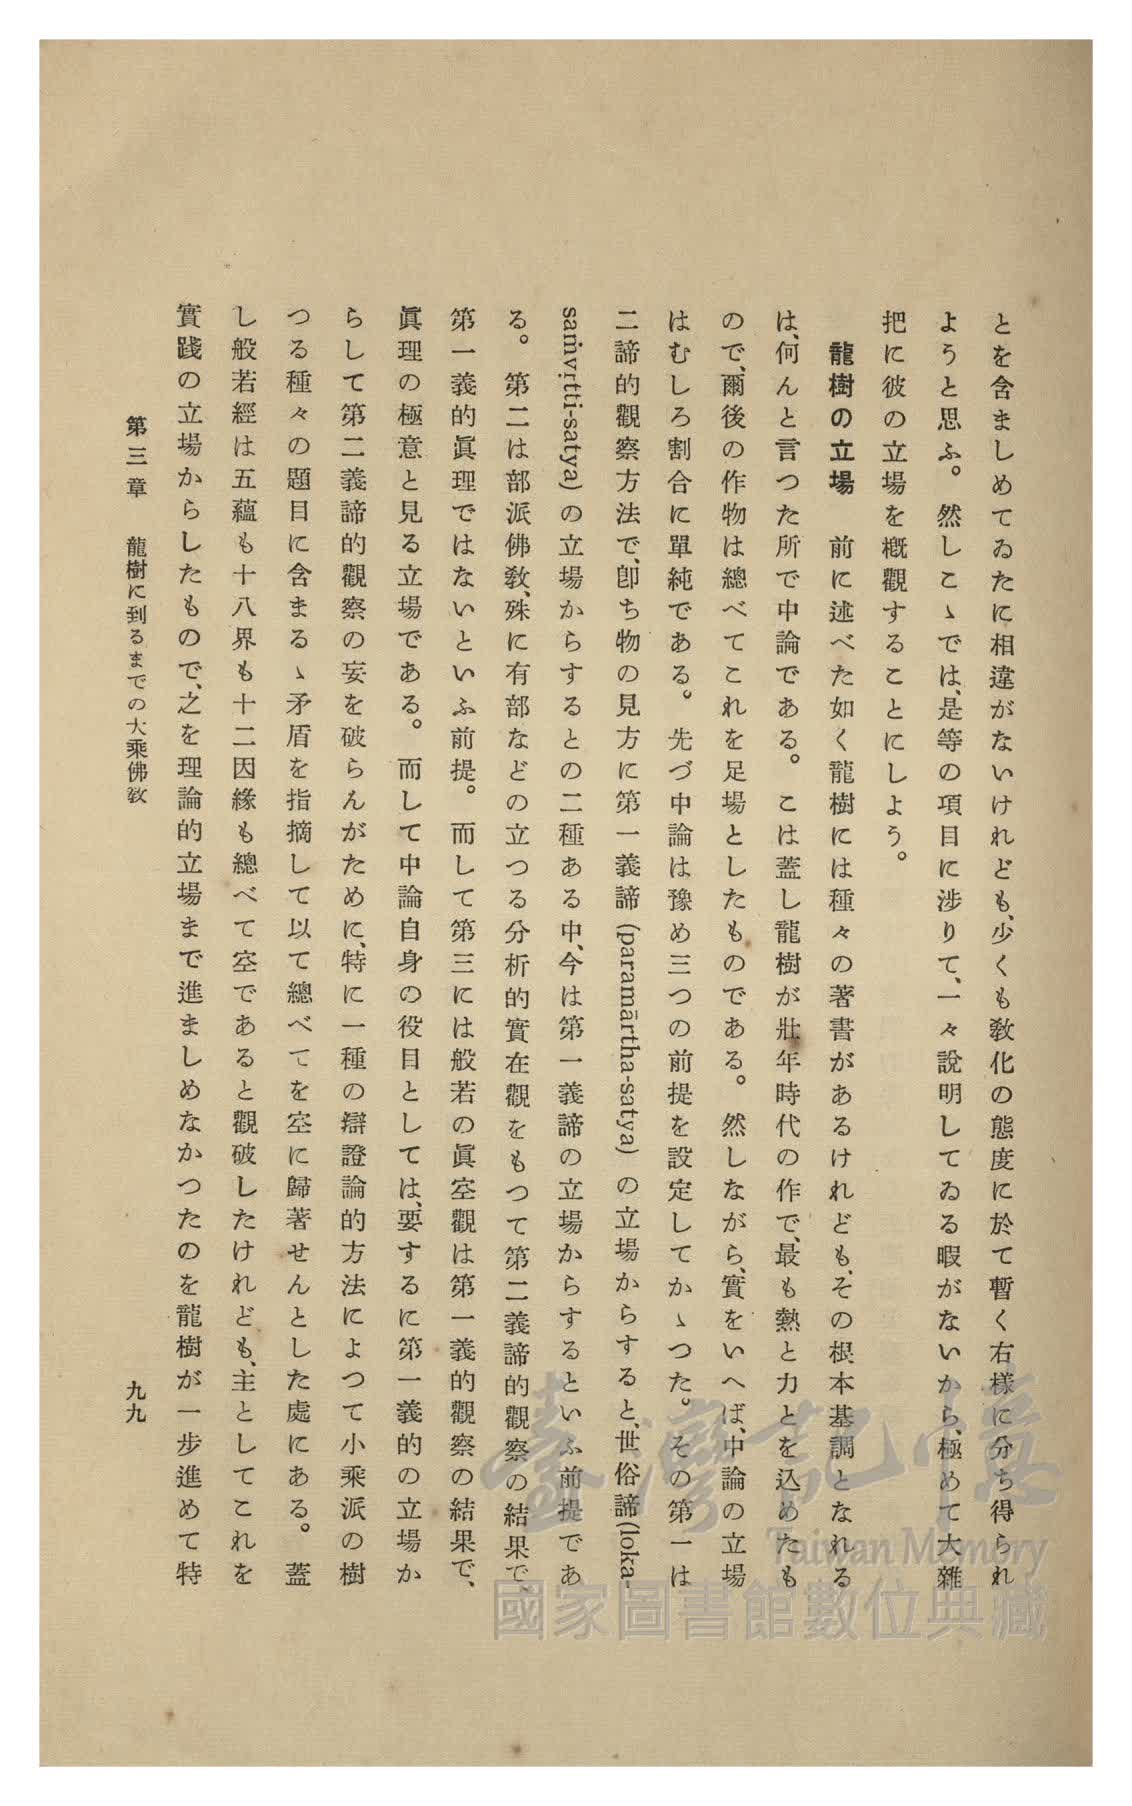 とを含ましめてゐたに相違がないけれども、少くも敎化の態度に於て暫く右樣に分ち得られ
ようと思ふ。然しこゝでは、是等の項目に涉りて、一々說明してゐる暇がないから、極めて大雜
把に彼の立場を槪觀することにしよう。
龍樹の立場　前に述べた如く龍樹には種々の著書があるけれども、その根本基調となれる
は、何んと言つた所で中論である。こは蓋し龍樹が壯年時代の作で、最も熱と力とを込めたも
ので、爾後の作物は總べてこれを足場としたものである。然しながら、實をいへば、中論の立場
はむしろ割合に單純である。先づ中論は豫め三つの前提を設定してかゝつた。その第一は
二諦的觀察方法で、卽ち物の見方に第一義諦 (paramārtha-satya) の立場からすると、世俗諦 (loka-
saṁvṛtti-satya) の立場からするとの二種ある中、今は第一義諦の立場からするといふ前提であ
る。第二は部派佛敎、殊に有部などの立つる分析的實在觀をもつて第二義諦的觀察の結果で、
第一義的眞理ではないといふ前提。而して第三には般若の眞空觀は第一義的觀察の結果で、
眞理の極意と見る立場である。而して中論自身の役目としては、要するに第一義的の立場か
らして第二義諦的觀察の妄を破らんがために、特に一種の辯證論的方法によつて小乘派の樹
つる種々の題目に含まるゝ矛盾を指摘して以て總べてを空に歸著せんとした處にある。蓋
し般若經は五蘊も十八界も十二因緣も總べて空であると觀破したけれども、主としてこれを
實踐の立場からしたもので、之を理論的立場まで進ましめなかつたのを龍樹が一步進めて特
第三章　龍樹に到るまでの大乘佛敎
九九
臺灣記憶
Taiwan Memory
國家圖書館數位典藏